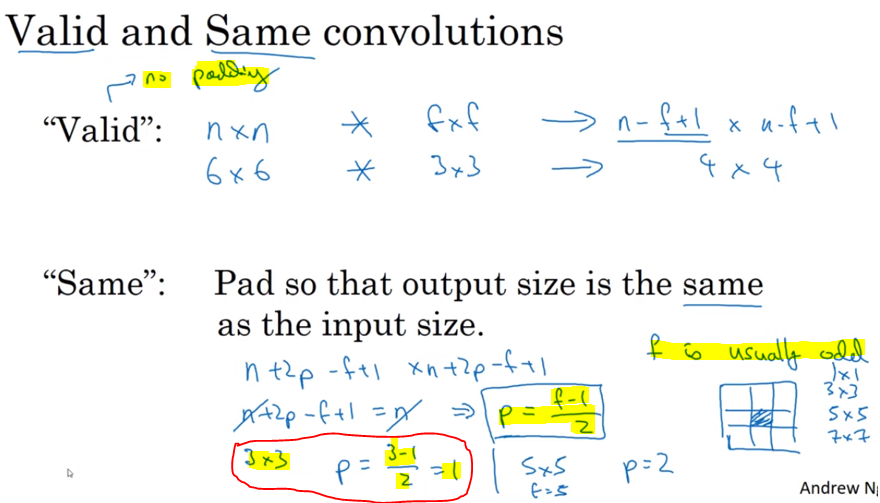 Valid and Same convolutions
→ no padding
“Valid”: n×n * f×f → n-f+1 × n-f+1
6×6 * 3×3 → 4 × 4
“Same”: Pad so that output size is the same
as the input size.
n+2p-f+1 ×n+2p-f+1
n+2p-f+1 = n ⇒ p = f-1/2
f is usually odd
1×1
3×3
5×5
7×7
3×3 p = 3-1/2 = 1 | 5×5 p=2
f=5
Andrew Ng